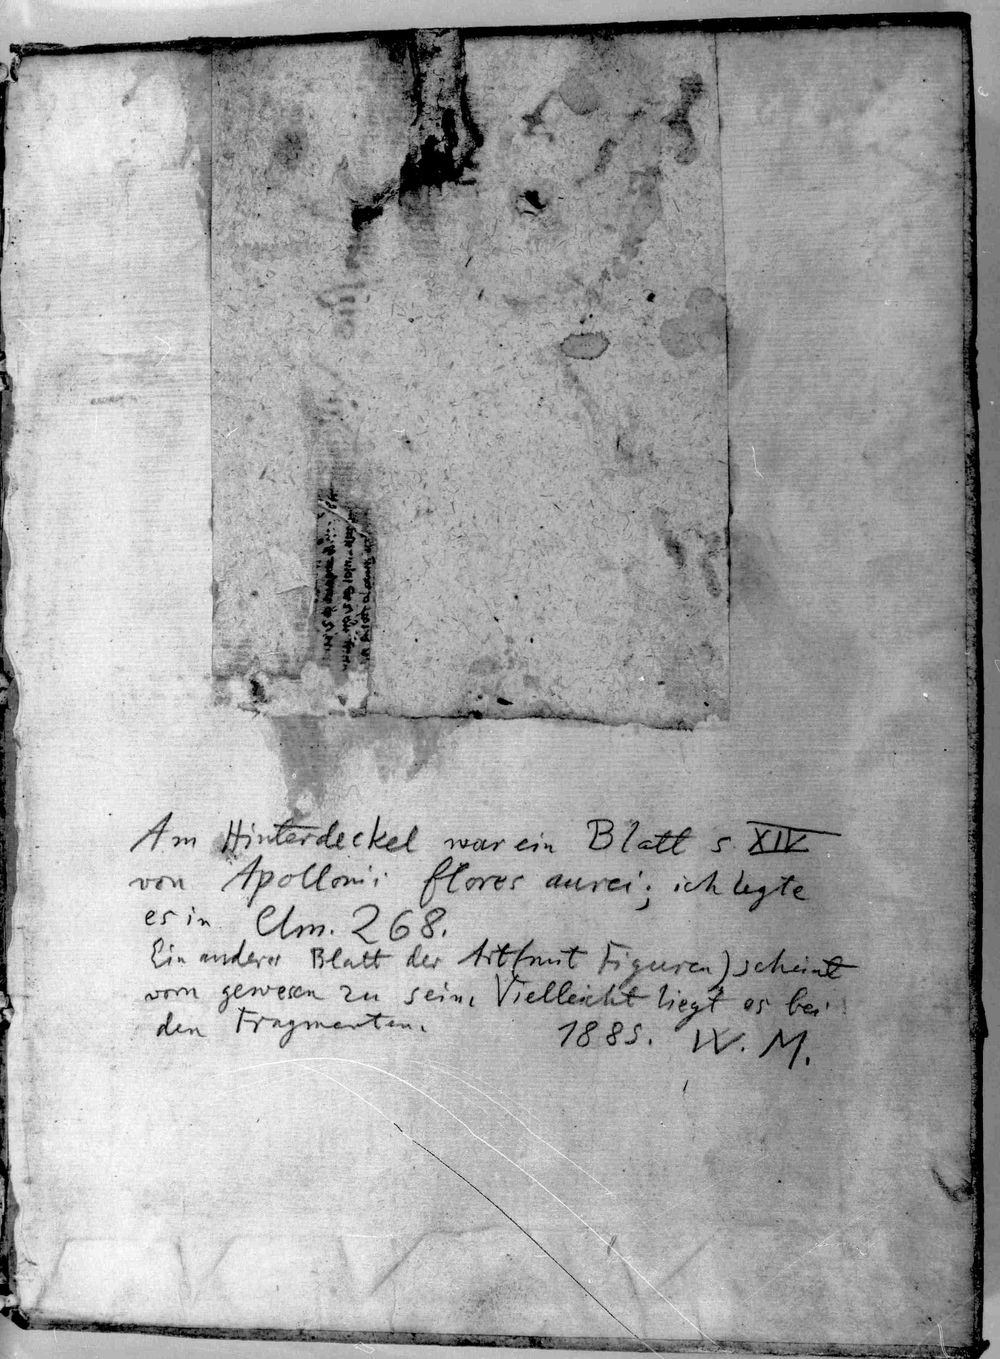 Am Hinterdeckel war ein Blatt s. XIV
von Apollonii flores aurei; ich legte
es in Clm. 268.
Ein anderes Blatt der Art (mit Figuren) scheint
vorn gewesen zu sein. Vielleicht liegt es bei
den Fragmenten. 1885. W. M.